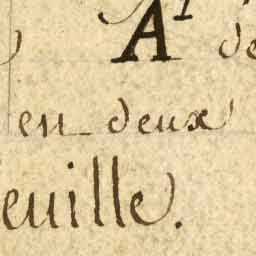 A¹ de
en deux
euille.